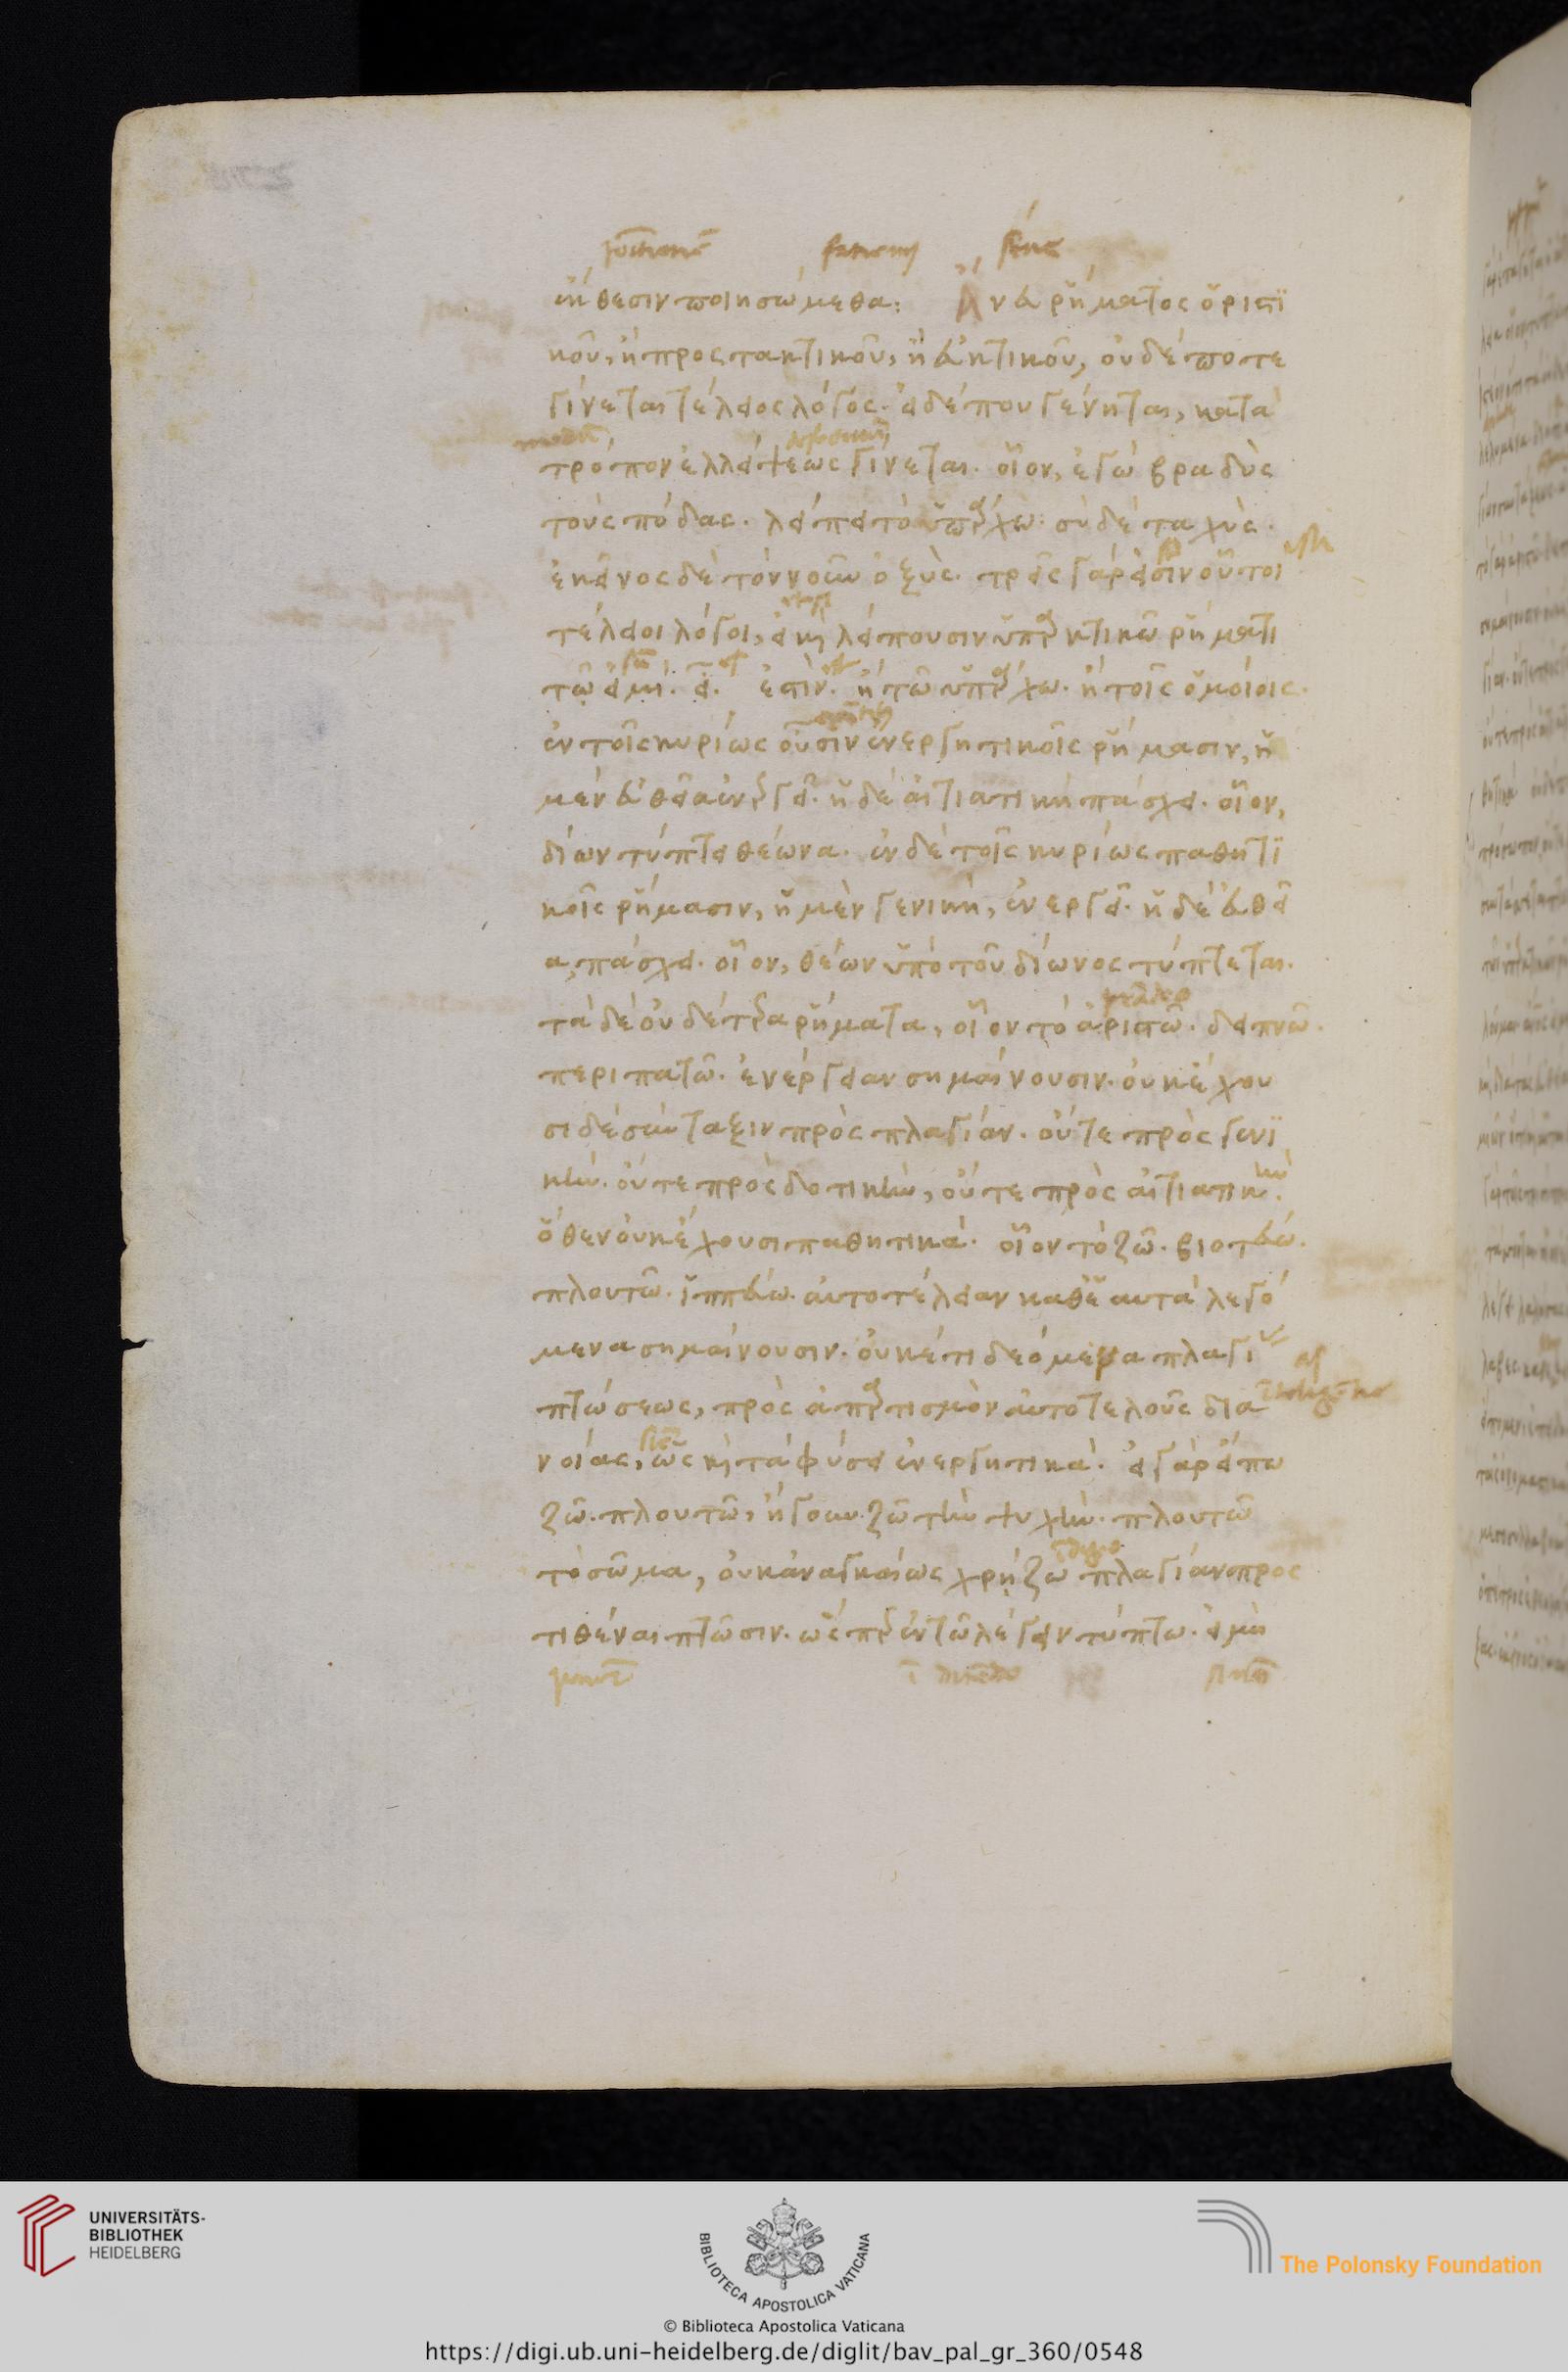 ἔκθεσιν ποιησώμεθα: Ἄνευ ῥήματος ὁριστι
κοῦ, ἢ προστακτικοῦ, ἢ εὐκτικοῦ, οὐδέποτε
γίνεται τέλειος λόγος. εἰ δέ που γένηται, κατὰ
τρόπον ἐλλείψεως γίνεται. οἷον, ἐγὼ βραδὺς
τοὺς πόδας. λείπει τὸ ὑπάρχω. σὺ δὲ ταχύς.
ἐκεῖνος δὲ τὸν νοῦν ὀξύς. τρεῖς γάρ εἰσιν οὗτοι
τέλειοι λόγοι, εἰ καὶ λείπουσιν ὑπαρκτικῶ ῥήματι
τῷ εἰμί. εἶ. ἐστίν. ἢ τῶ ὑπάρχω. ἢ τοῖς ὁμοίοις.
ἐν τοῖς κυρίως οὖσιν ἐνεργητικοῖς ῥήμασιν, ἡ
μὲν εὐθεῖα ἐνεργεῖ. ἡ δὲ αἰτιατικὴ πάσχει. οἷον,
δίων τύπτει θέωνα. ἐν δὲ τοῖς κυρίως παθητι
κοῖς ῥήμασιν, ἡ μὲν γενική, ἐνεργεῖ. ἡ δὲ εὐθεῖ
α, πάσχει. οἷον, θέων ὑπὸ τοῦ δίωνος τύπτεται.
τὰ δὲ οὐδέτερα ῥήματα, οἷον τὸ ἀριστῶ. δειπνῶ.
περιπατῶ. ἐνέργειαν σημαίνουσιν. οὐκ ἔχου
σι δὲ σύνταξιν πρὸς πλαγίαν. οὔτε πρὸς γενι
κὴν. οὔτε πρὸς δοτικὴν, οὔτε πρὸς αἰτιατικὴν.
ὅθεν οὐκ ἔχουσι παθητικά. οἷον τὸ ζῶ. βιοτεύω.
πλουτῶ. ἱππεύω. αὐτοτέλειαν καθ' ἑαυτὰ λεγό
μενα σημαίνουσιν. οὐκέτι δεόμενα πλαγί
πτώσεως, πρὸς ἀπαρτισμὸν αὐτοτελοῦς δια
νοίας, ὡς καὶ τὰ φύσει ἐνεργητικά. εἰ γὰρ εἴπω
ζῶ. πλουτῶ, ἤγουν. ζῶ τὴν ψυχὴν. πλουτῶ
τὸ σῶμα, οὐκ ἀναγκαίως χρῄζω πλαγίαν προς
τιθέναι πτῶσιν. ὥσπερ ἐν τῶ λέγειν τύπτω. εἰ μὴ
UNIVERSITÄTS-
BIBLIOTHEK
HEIDELBERG
BIBLIOTECA APOSTOLICA VATICANA
The Polonsky Foundation
© Biblioteca Apostolica Vaticana
https://digi.ub.uni-heidelberg.de/diglit/bav_pal_gr_360/0548